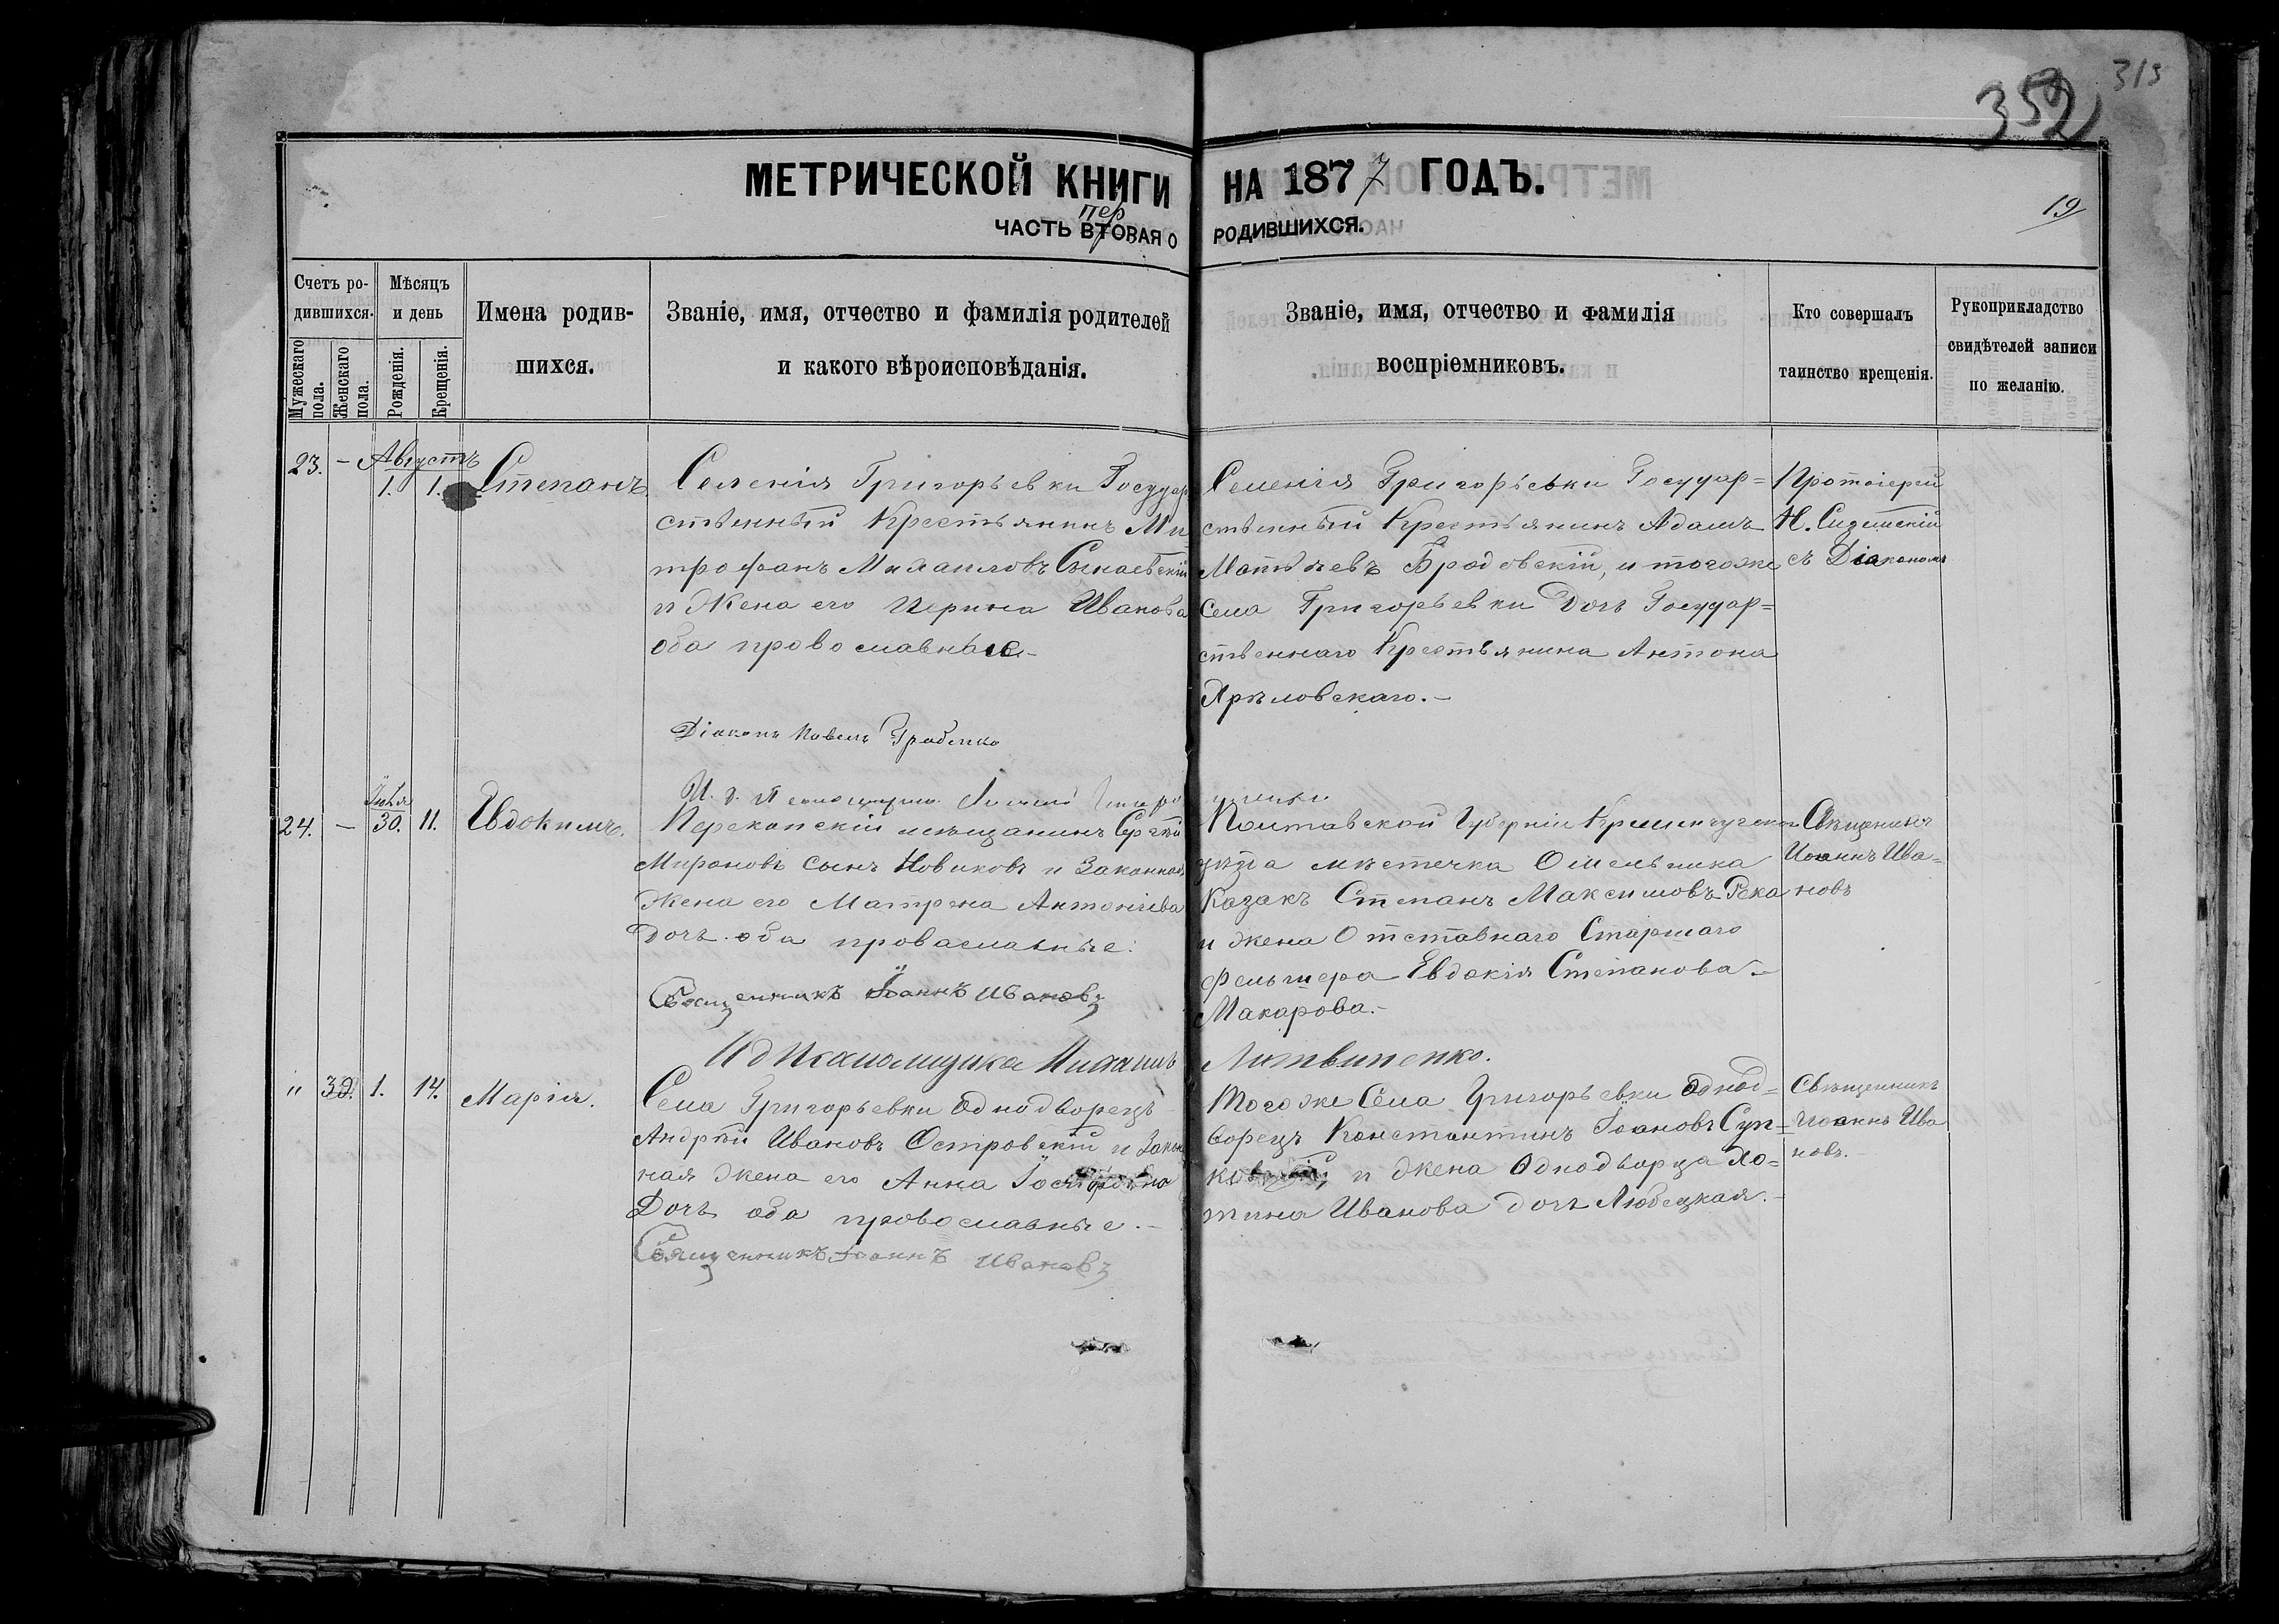 352
313
МЕТРИЧЕСКОЙ КНИГИ НА 1877 ГОДЪ.
пер
ЧАСТЬ ВТОРАЯ О РОДИВШИХСЯ.
19
Счетъ ро-
дившихся.
Мужескаго пола.
Женскаго пола.
Мѣсяцъ
и день
Рожденія.
Крещенія.
Имена родив-
шихся.
Званіе, имя, отчество и фамилія родителей
и какого вѣроисповѣданія.
Званіе, имя, отчество и фамилія
воспріемниковъ.
Кто совершалъ
таинство крещенія.
Рукоприкладство
свидѣтелей записи
по желанію.
23. – Августъ
1. 1. Степанъ.
Селенія Григорьевки Государ
ственный Крестьянинъ Ми-
трофанъ Михаиловъ
и Жена его Ирина Иванова
оба провославные.–
Діаконъ Павелъ Грабенко
Селенія Григорьевки Государ=
ственный Крестьянинъ Адамъ
Матвѣевъ Бродовскій, и тогоже
Села Григорьевки Дочь Государ=
ственнаго Крестьянина Антона
Протоіерей
Н.
съ Діакономъ
И. д.
24. – Іюля
30. 11. Евдокимъ.
Перекопскій мѣщанинъ Сергѣй
Мироновъ сынъ Новиковъ и Законная
Жена его Матрена Антоніева
Дочь оба провославные.
Священникъ Іоаннъ Ивановъ
Полтавской Губерніи Кременчугскаго
уѣзда мѣстечка Омельника
Казакъ Степанъ Максимовъ Река
и жена Отставнаго Старшаго
Фельшера Евдокія Степанова
Макарова.–
Священникъ
Иоаннъ Ива=
новъ
И д Псаломщика Михаилъ Литвиненко.
" 30. 1. 14. Марія.
Села Григорьевки Однодворецъ
Андрѣй Ивановъ Островскій и Закон
ная жена его Анна
Дочь оба провославные.–
Священникъ Іоаннъ Ивановъ
Тогоже Села Григорьевки Однод=
ворецъ Константинъ Іоановъ
и жена Однодворца
Иванова дочь Любецкая.–
Священникъ
Иоаннъ Ива
новъ.–